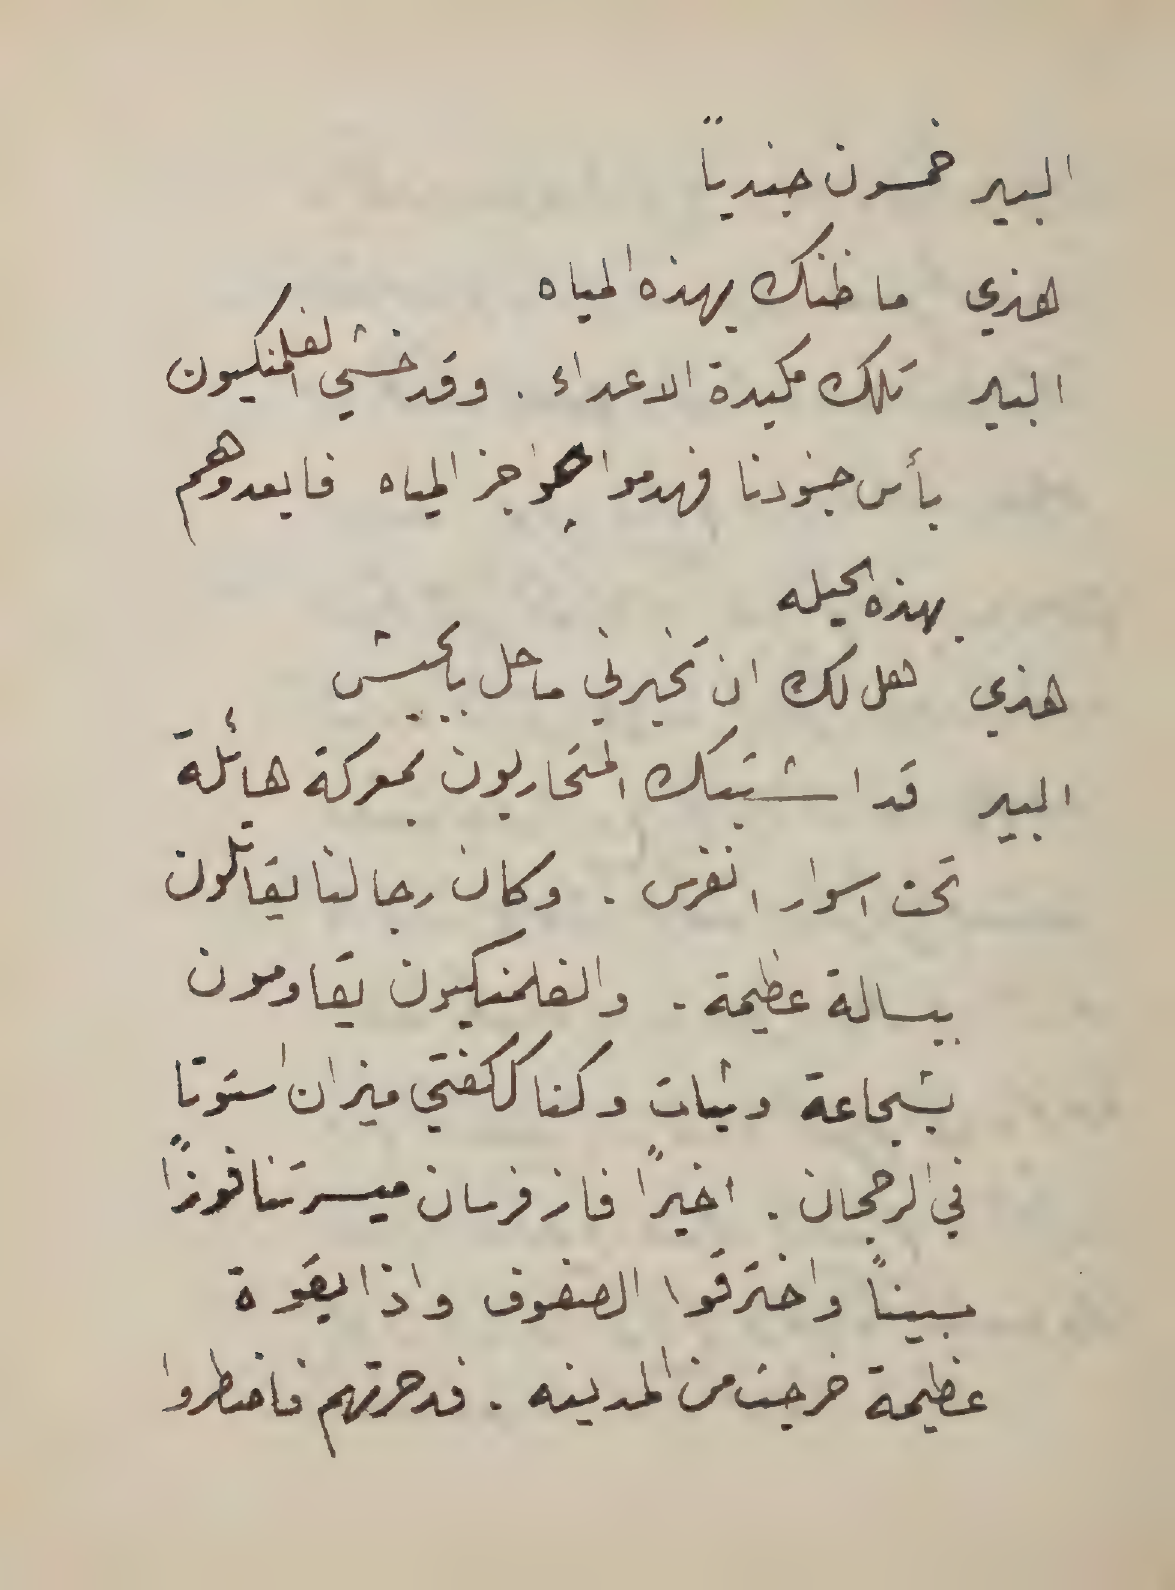 البير خمسون جندياً
هنري ما ظنك بهذه المياه
البير تلك مكيدة الاعداء . وقد خشي الفلمنكيون
بأس جنودنا فهدموا حواجز المياه فابعدوهم
بهذه الحيله
هنري هل لك ان تخبرني ما حل بالجيش
البير قد اشتبك المتحاربون بمعركة هائلة
تحت اسوار انفرس . وكان رجالنا يقاتلون
ببسالة عظيمة . والفلمنكيون يقاومون
بشجاعة وثبات وكنا ككفتي ميزان استوتا
في الرجحان . اخيرًا فاز فرسان ميسرتنا فوزًا
مبينًا واخترقوا الصفوف واذا بقوة
عظيمة خرجت من المدينه . فدحرتهم فاضطروا